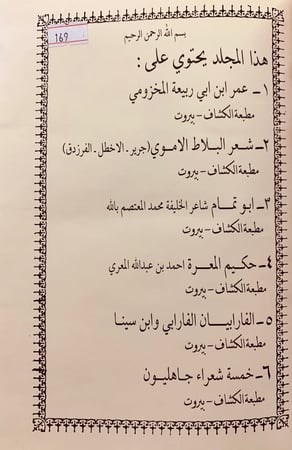 بسم الله الرحمن الرحيم
169
هذا المجلد يحتوي على :
١ــ عمر ابن ابي ربيعة المخزومي
مطبعة الكشاف – بيروت
٢ــ شعر البلاط الاموي (جرير ـ الاخطل ـ الفرزدق)
مطبعة الكشاف – بيروت
٣ــ ابو تمام شاعر الخليفة محمد المعتصم بالله
مطبعة الكشاف – بيروت
٤ــ حكيم المعرة احمد بن عبدالله المعري
مطبعة الكشاف – بيروت
٥ــ الفارابيان الفارابي وابن سينا
مطبعة الكشاف – بيروت
٦ــ خمسة شعراء جاهليون
مطبعة الكشاف – بيروت